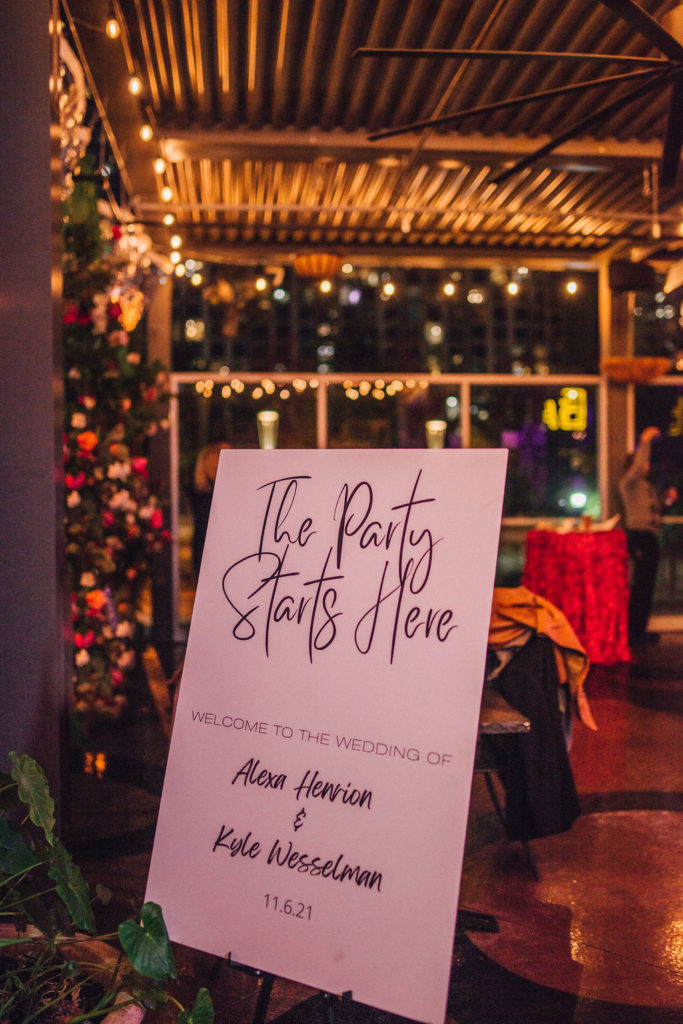 The Party
Starts Here
WELCOME TO THE WEDDING OF
Alexa Henrion
&
Kyle Wesselman
11.6.21